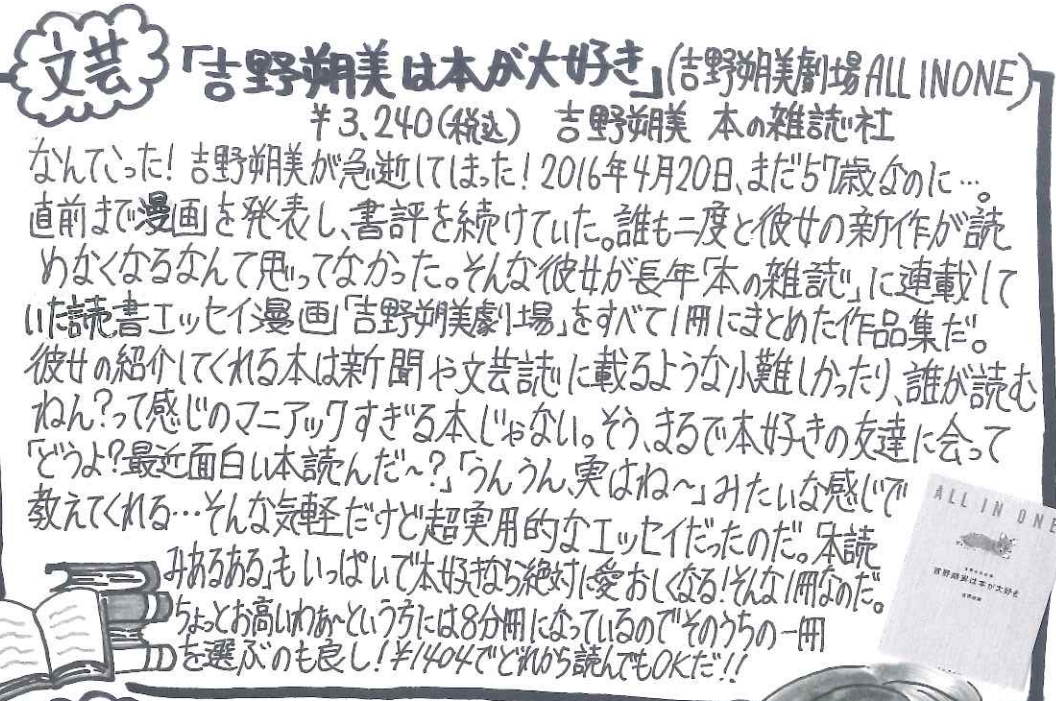 文芸
「吉野朔美は本が大好き」(吉野朔美劇場 ALL IN ONE)
¥3,240(税込) 吉野朔美 本の雑誌社
なんてこった!吉野朔美が急逝してしまった!2016年4月20日、まだ57歳なのに…。
直前まで漫画を発表し、書評を続けていた。誰も二度と彼女の新作が読
めなくなるなんて思ってなかった。そんな彼女が長年「本の雑誌」に連載して
いた読書エッセイ漫画「吉野朔美劇場」をすべて1冊にまとめた作品集だ。
彼女の紹介してくれる本は新聞や文芸誌に載るような小難しかったり、誰が読む
ねん?って感じのマニアックすぎる本じゃない。そう、まるで本好きの友達に会って
「どうよ?最近面白い本読んだ〜?」「うんうん、実はね〜」みたいな感じで
教えてくれる…そんな気軽だけど超実用的なエッセイだったのだ。「本読
みあるある」もいっぱいで本好きなら絶対に愛おしくなる!そんな1冊なのだ。
ちょっとお高いわぁ〜という方には8分冊になっているのでそのうちの一冊
を選ぶのも良し!¥1404でどれから読んでもOKだ!!
ALL IN ONE
吉野朔実は本が大好き